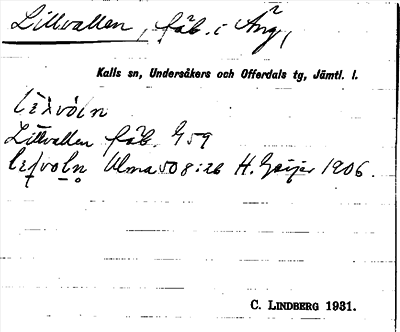 Lillvallen, fäb. i Äng,
Kalls sn, Undersåkers och Offerdals tg, Jämtl. l.
Lillvallen fäb. G59
Ulma 508:26 H. Geijer 1906.
C. LINDBERG 1931.